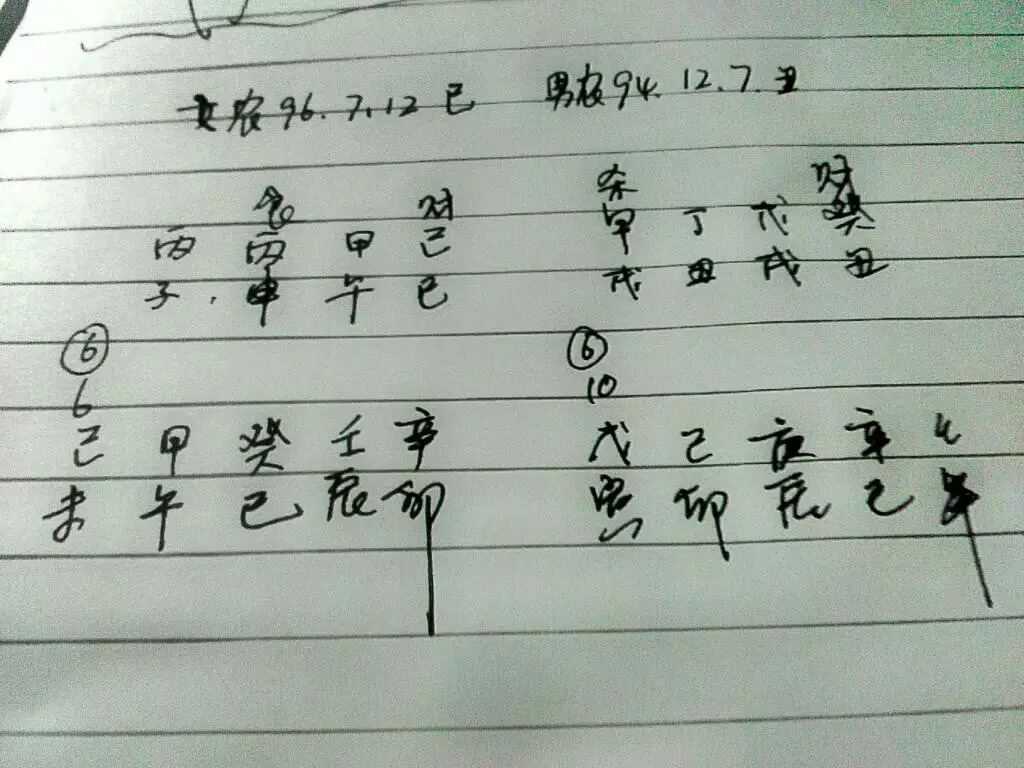 女农96.7.12巳 男农94.12.7.丑
食 财 杀 财
丙 丙 甲 己 甲 丁 戊 癸
子 . 申 午 巳 戌 丑 戌 丑
⑥ ⑥
6 10
己 甲 癸 壬 辛 戊 己 辛
未 午 巳 辰 卯 寅 卯 辰 巳